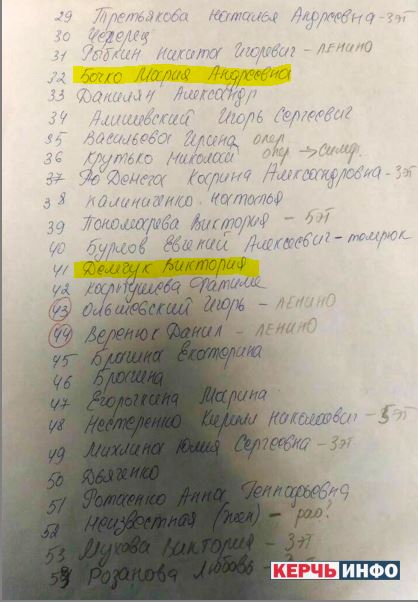 29 Третьякова Наталья Андреевна - 3эт
30 Черерец
31 Рыбкин Никита Игоревич - ЛЕНИНО
32 Бочко Мария Андреевна
33 Данилян Александр
34 Алишевский Игорь Сергеевич
35 Васильева Ирина опер.
36 Крутько Николай опер → Симф.
37 Каорина Александровна - 3эт
38 Калиниченко Наталья
39 Пономарева Виктория - 5эт
40 Бурлов Евгений Алексеевич - темрюк
41 Демчук Виктория
42 Фатиме
43 Ольшевский Игорь - ЛЕНИНО
44 Веренюк Данил - ЛЕНИНО
45 Брагина Екатерина
46 Брагина
47 Егорыкина Марина
48 Нестеренко Кирилл Николаевич - 5эт
49 Михлина Юлия Сергеевна - 3эт
50 Дьяченко
51 Анна Геннадьевна
52 Неизвестная
53 Мухова Виктория - 3эт
Розанова Любовь - 3эт
КЕРЧЬИНФО